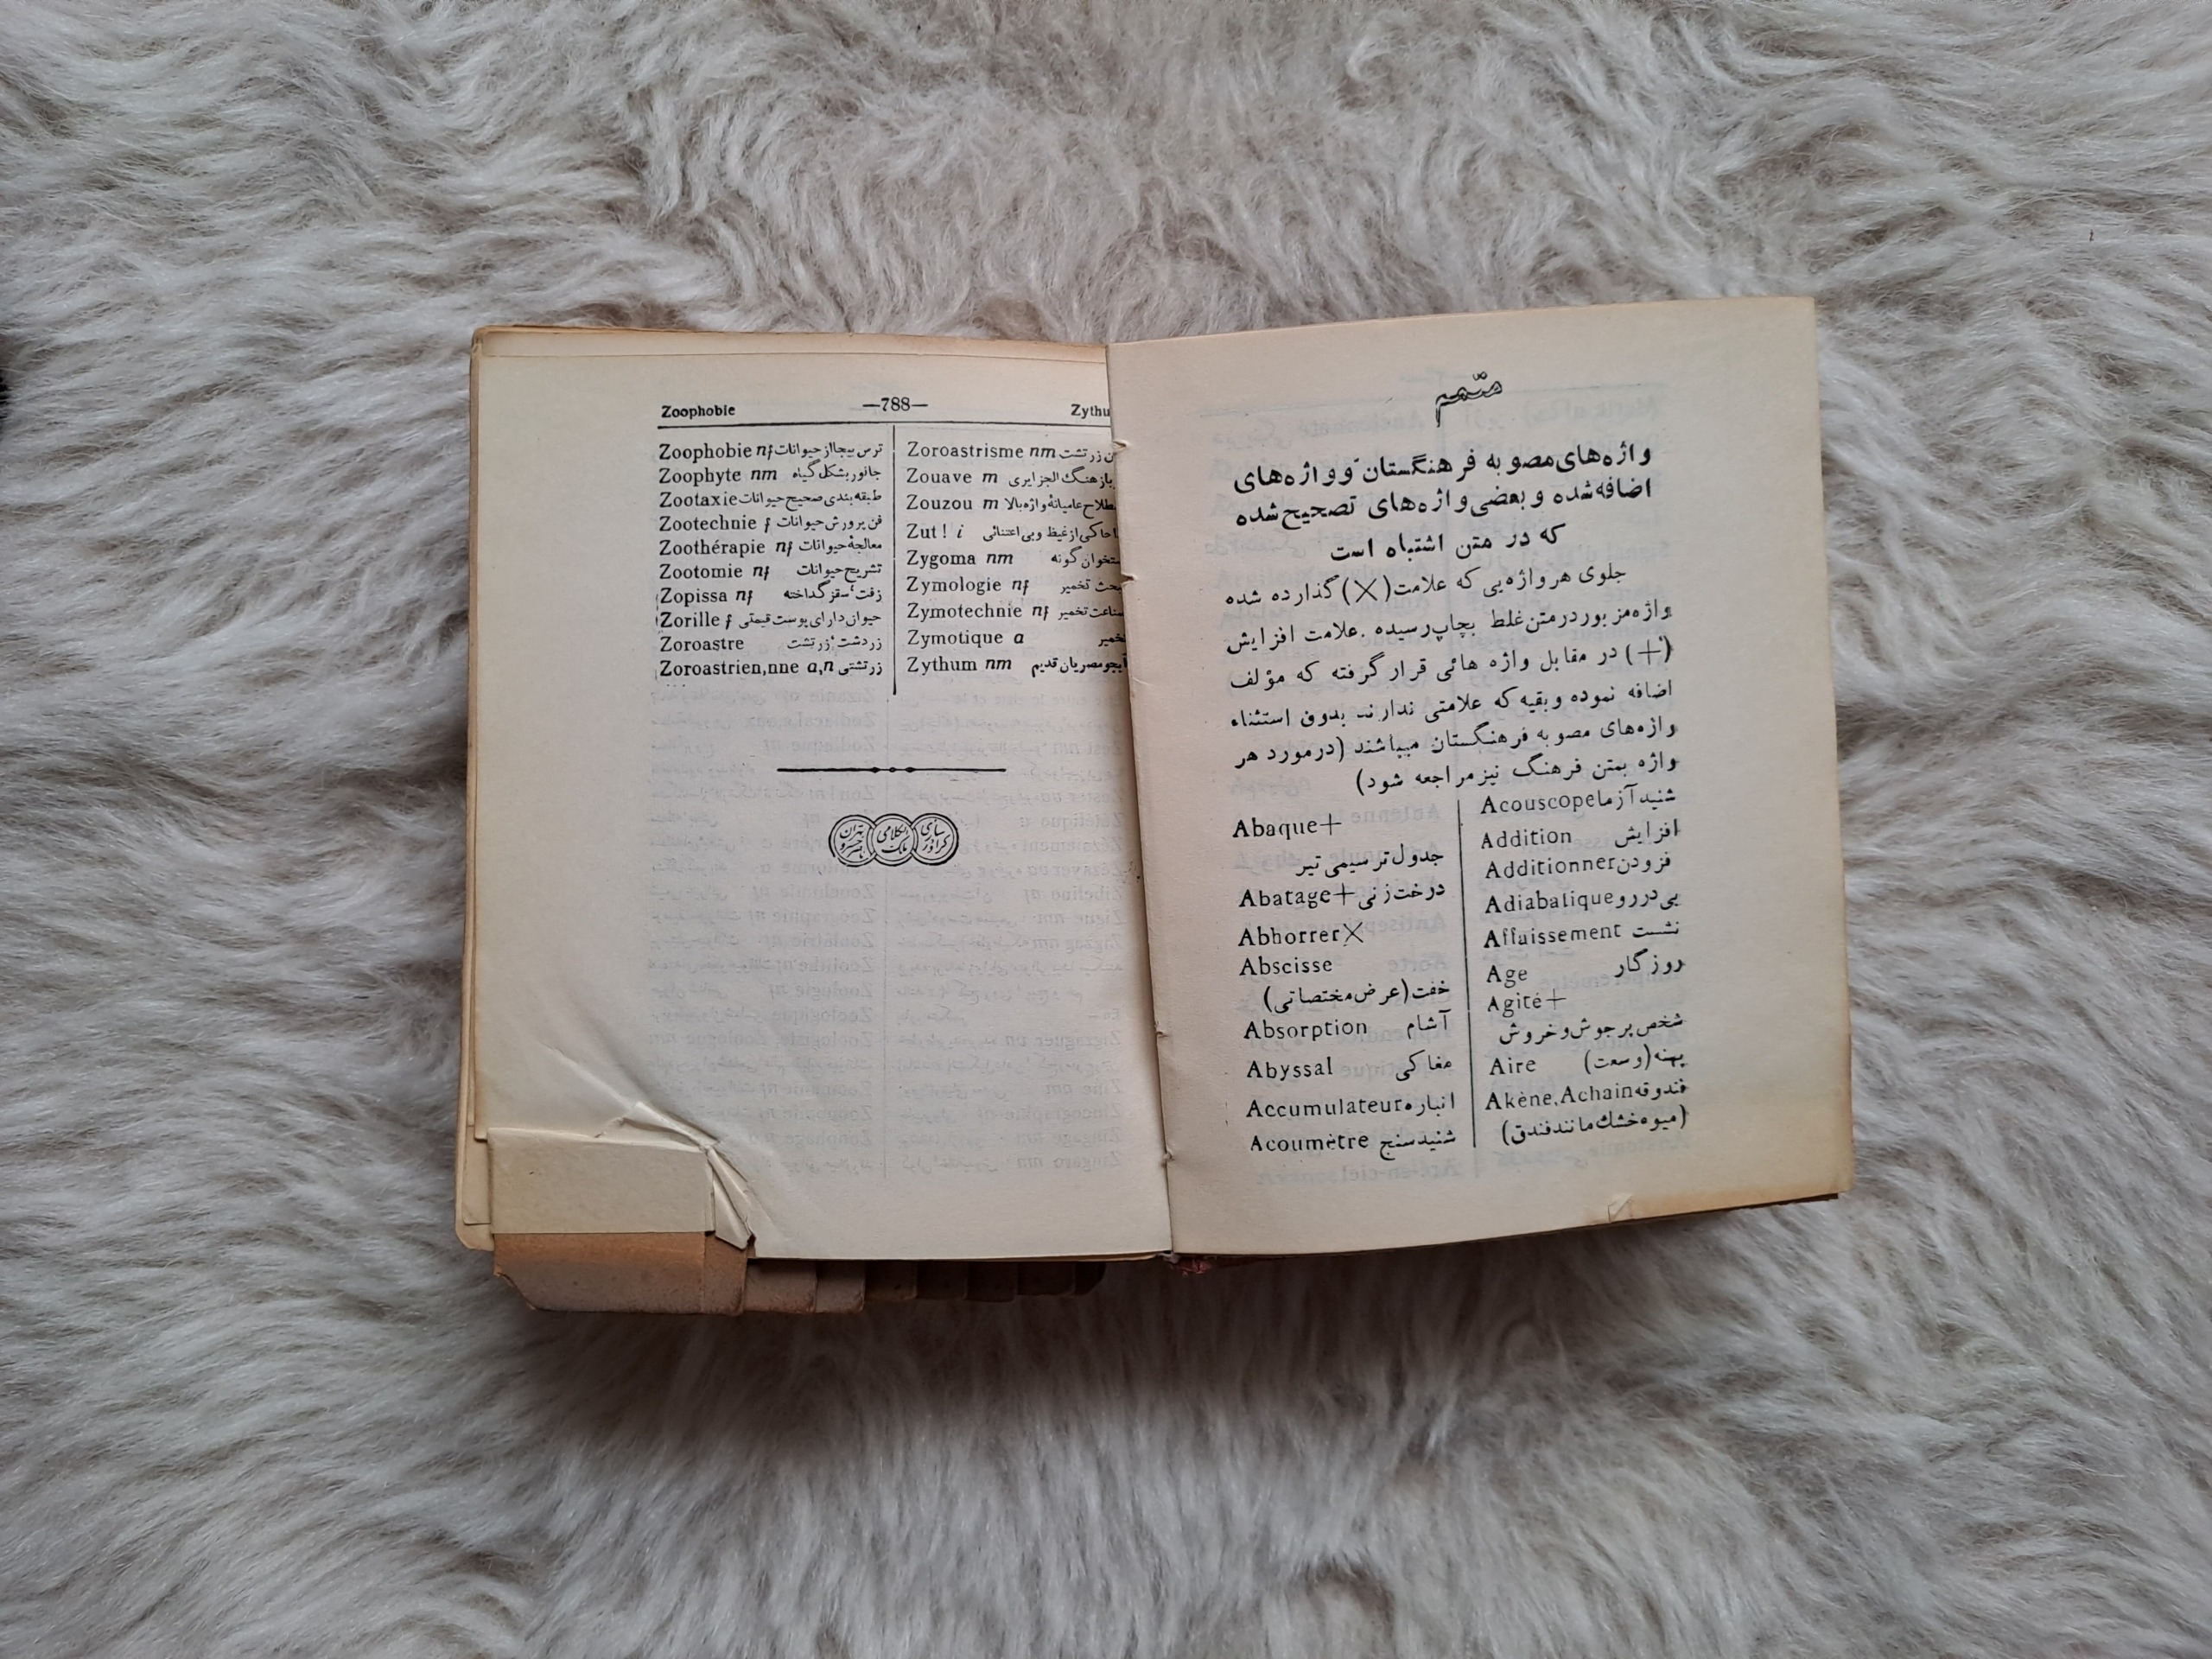 Zoophobie —788— Zythu
Zoophobie nf ترس بیجااز حیوانات
Zoophyte nm جانور بشکل گیاه
Zootaxie طبقه بندی صحیح حیوانات
Zootechnie f فن پرورش حیوانات
Zoothérapie nf معالجهٔ حیوانات
Zootomie nf تشریح حیوانات
Zopissa nf زفت، سقز گداخته
Zorille f حیوان دارای پوست قیمتی
Zoroastre زردشت، زرتشت
Zoroastrien,nne a,n زرتشتی
Zoroastrisme nm زرتشت
Zouave m الجزایری
Zouzou m عامیانهٔ واژه بالا
Zut! i حاکی از غیظ و بی اعتنائی
Zygoma nm گونه
Zymologie nf تخمیر
Zymotechnie nf تخمیر
Zymotique a
Zythum nm مصریان قدیم
متمم
واژه‌های مصوبه فرهنگستان و واژه‌های
اضافه شده و بعضی واژه‌های تصحیح شده
که در متن اشتباه است
جلوی هر واژه‌یی که علامت (×) گذارده شده
واژه مزبور در متن غلط بچاپ رسیده . علامت افزایش
(+) در مقابل واژه هائی قرار گرفته که مؤلف
اضافه نموده و بقیه که علامتی ندارند بدون استثناء
واژه‌های مصوبه فرهنگستان میباشند (در مورد هر
واژه بمتن فرهنگ نیز مراجعه شود)
Abaque+
جدول ترسیمی تیر
Abatage+ درخت زنی
Abhorrer×
Abscisse
خفت (عرض مختصاتی)
Absorption آشام
Abyssal مغاکی
Accumulateur انباره
Acoumètre شنید سنج
Acouscope شنید آزما
Addition افزایش
Additionner فزودن
Adiabatique بی دررو
Affaissement نشست
Age روزگار
Agité+
شخص پر جوش و خروش
Aire پهنه (وسعت)
Akène, Achain فندوقه
(میوه خشك مانند فندق)